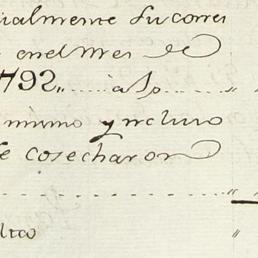 ialmente su corres
e enel Mes de
792,,......
mismo y incluso
e cosecharon
lta